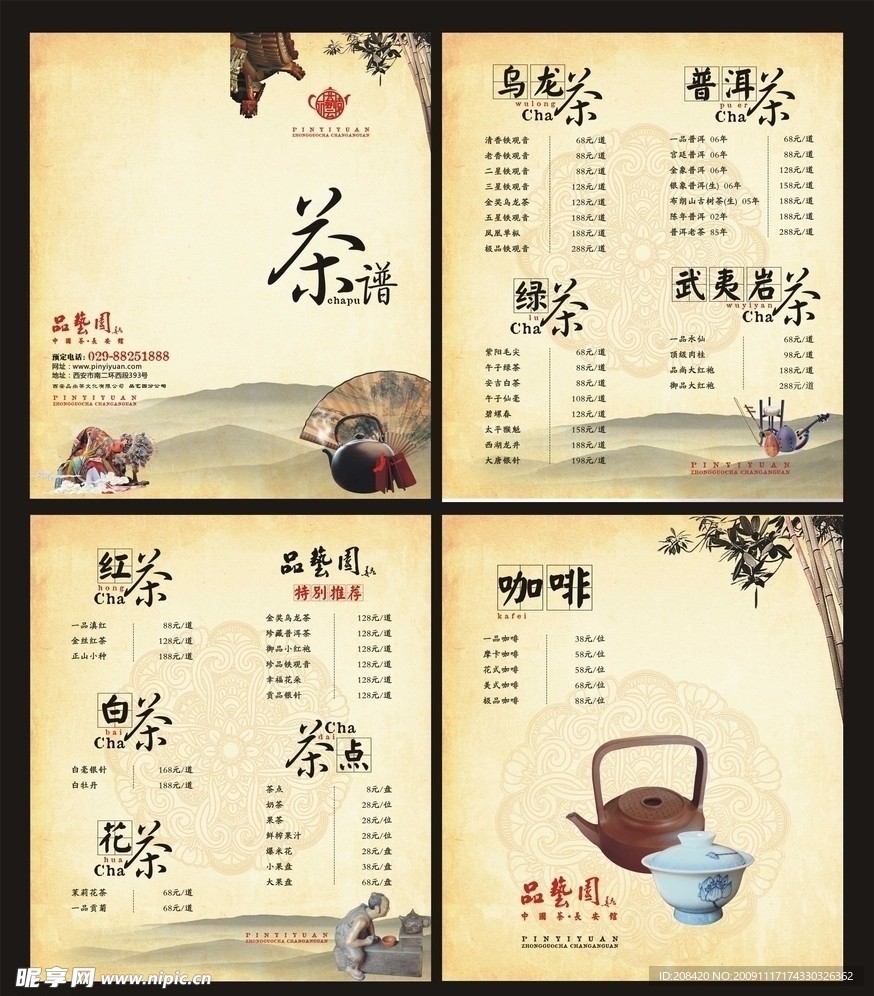 PINYIYUAN
ZHONGGUOCHA CHANGANGUAN
茶谱
chapu
品藝園
中國茶·長安館
预定电话:029-88251888
网址:www.pinyiyuan.com
地址:西安市南二环西段393号
PINYIYUAN
ZHONGGUOCHA CHANGANGUAN
乌龙茶
wulong
Cha
清香铁观音 68元/道
老香铁观音 88元/道
二星铁观音 88元/道
三星铁观音 128元/道
金奖乌龙茶 128元/道
五星铁观音 188元/道
凤凰单枞 188元/道
极品铁观音 288元/道
普洱茶
pu er
Cha
一品普洱 06年 68元/道
宫廷普洱 06年 88元/道
金象普洱 06年 128元/道
银象普洱(生) 06年 158元/道
布朗山古树茶(生) 05年 188元/道
陈年普洱 02年 188元/道
普洱老茶 85年 288元/道
绿茶
lu
Cha
紫阳毛尖 68元/道
午子绿茶 88元/道
安吉白茶 88元/道
午子仙毫 108元/道
碧螺春 128元/道
太平猴魁 158元/道
西湖龙井 188元/道
大唐银针 198元/道
武夷岩茶
wuyiyan
Cha
一品水仙 68元/道
顶级肉桂 98元/道
品尚大红袍 188元/道
御品大红袍 288元/道
PINYIYUAN
ZHONGGUOCHA CHANGANGUAN
红茶
hong
Cha
一品滇红 88元/道
金丝红茶 128元/道
正山小种 188元/道
白茶
bai
Cha
白毫银针 168元/道
白牡丹 188元/道
花茶
hua
Cha
茉莉花茶 68元/道
一品贡菊 68元/道
品藝園
特别推荐
金奖乌龙茶 128元/道
珍藏普洱茶 128元/道
御品小红袍 128元/道
珍品铁观音 128元/道
幸福花朵 128元/道
贡品银针 128元/道
茶点
Cha
dai
茶点 8元/盘
奶茶 28元/位
果茶 28元/位
鲜榨果汁 28元/位
爆米花 28元/盘
小果盘 38元/盘
大果盘 68元/盘
PINYIYUAN
ZHONGGUOCHA CHANGANGUAN
咖啡
kafei
一品咖啡 38元/位
摩卡咖啡 58元/位
花式咖啡 58元/位
美式咖啡 68元/位
极品咖啡 88元/位
品藝園
中國茶·長安館
PINYIYUAN
ZHONGGUOCHA CHANGANGUAN
昵享网 www.nipic.cn
ID:208420 NO:20091117174330326362